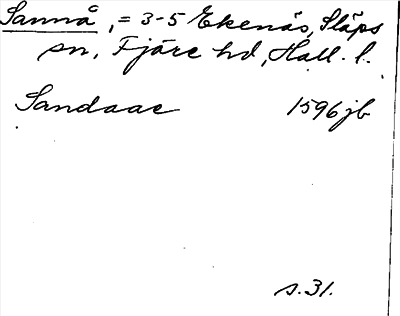 Sannå, = 3-5 Ekenäs, Släps
sn, Fjäre hd, Hall. l.
Sandaae 1596 jb
s. 31.